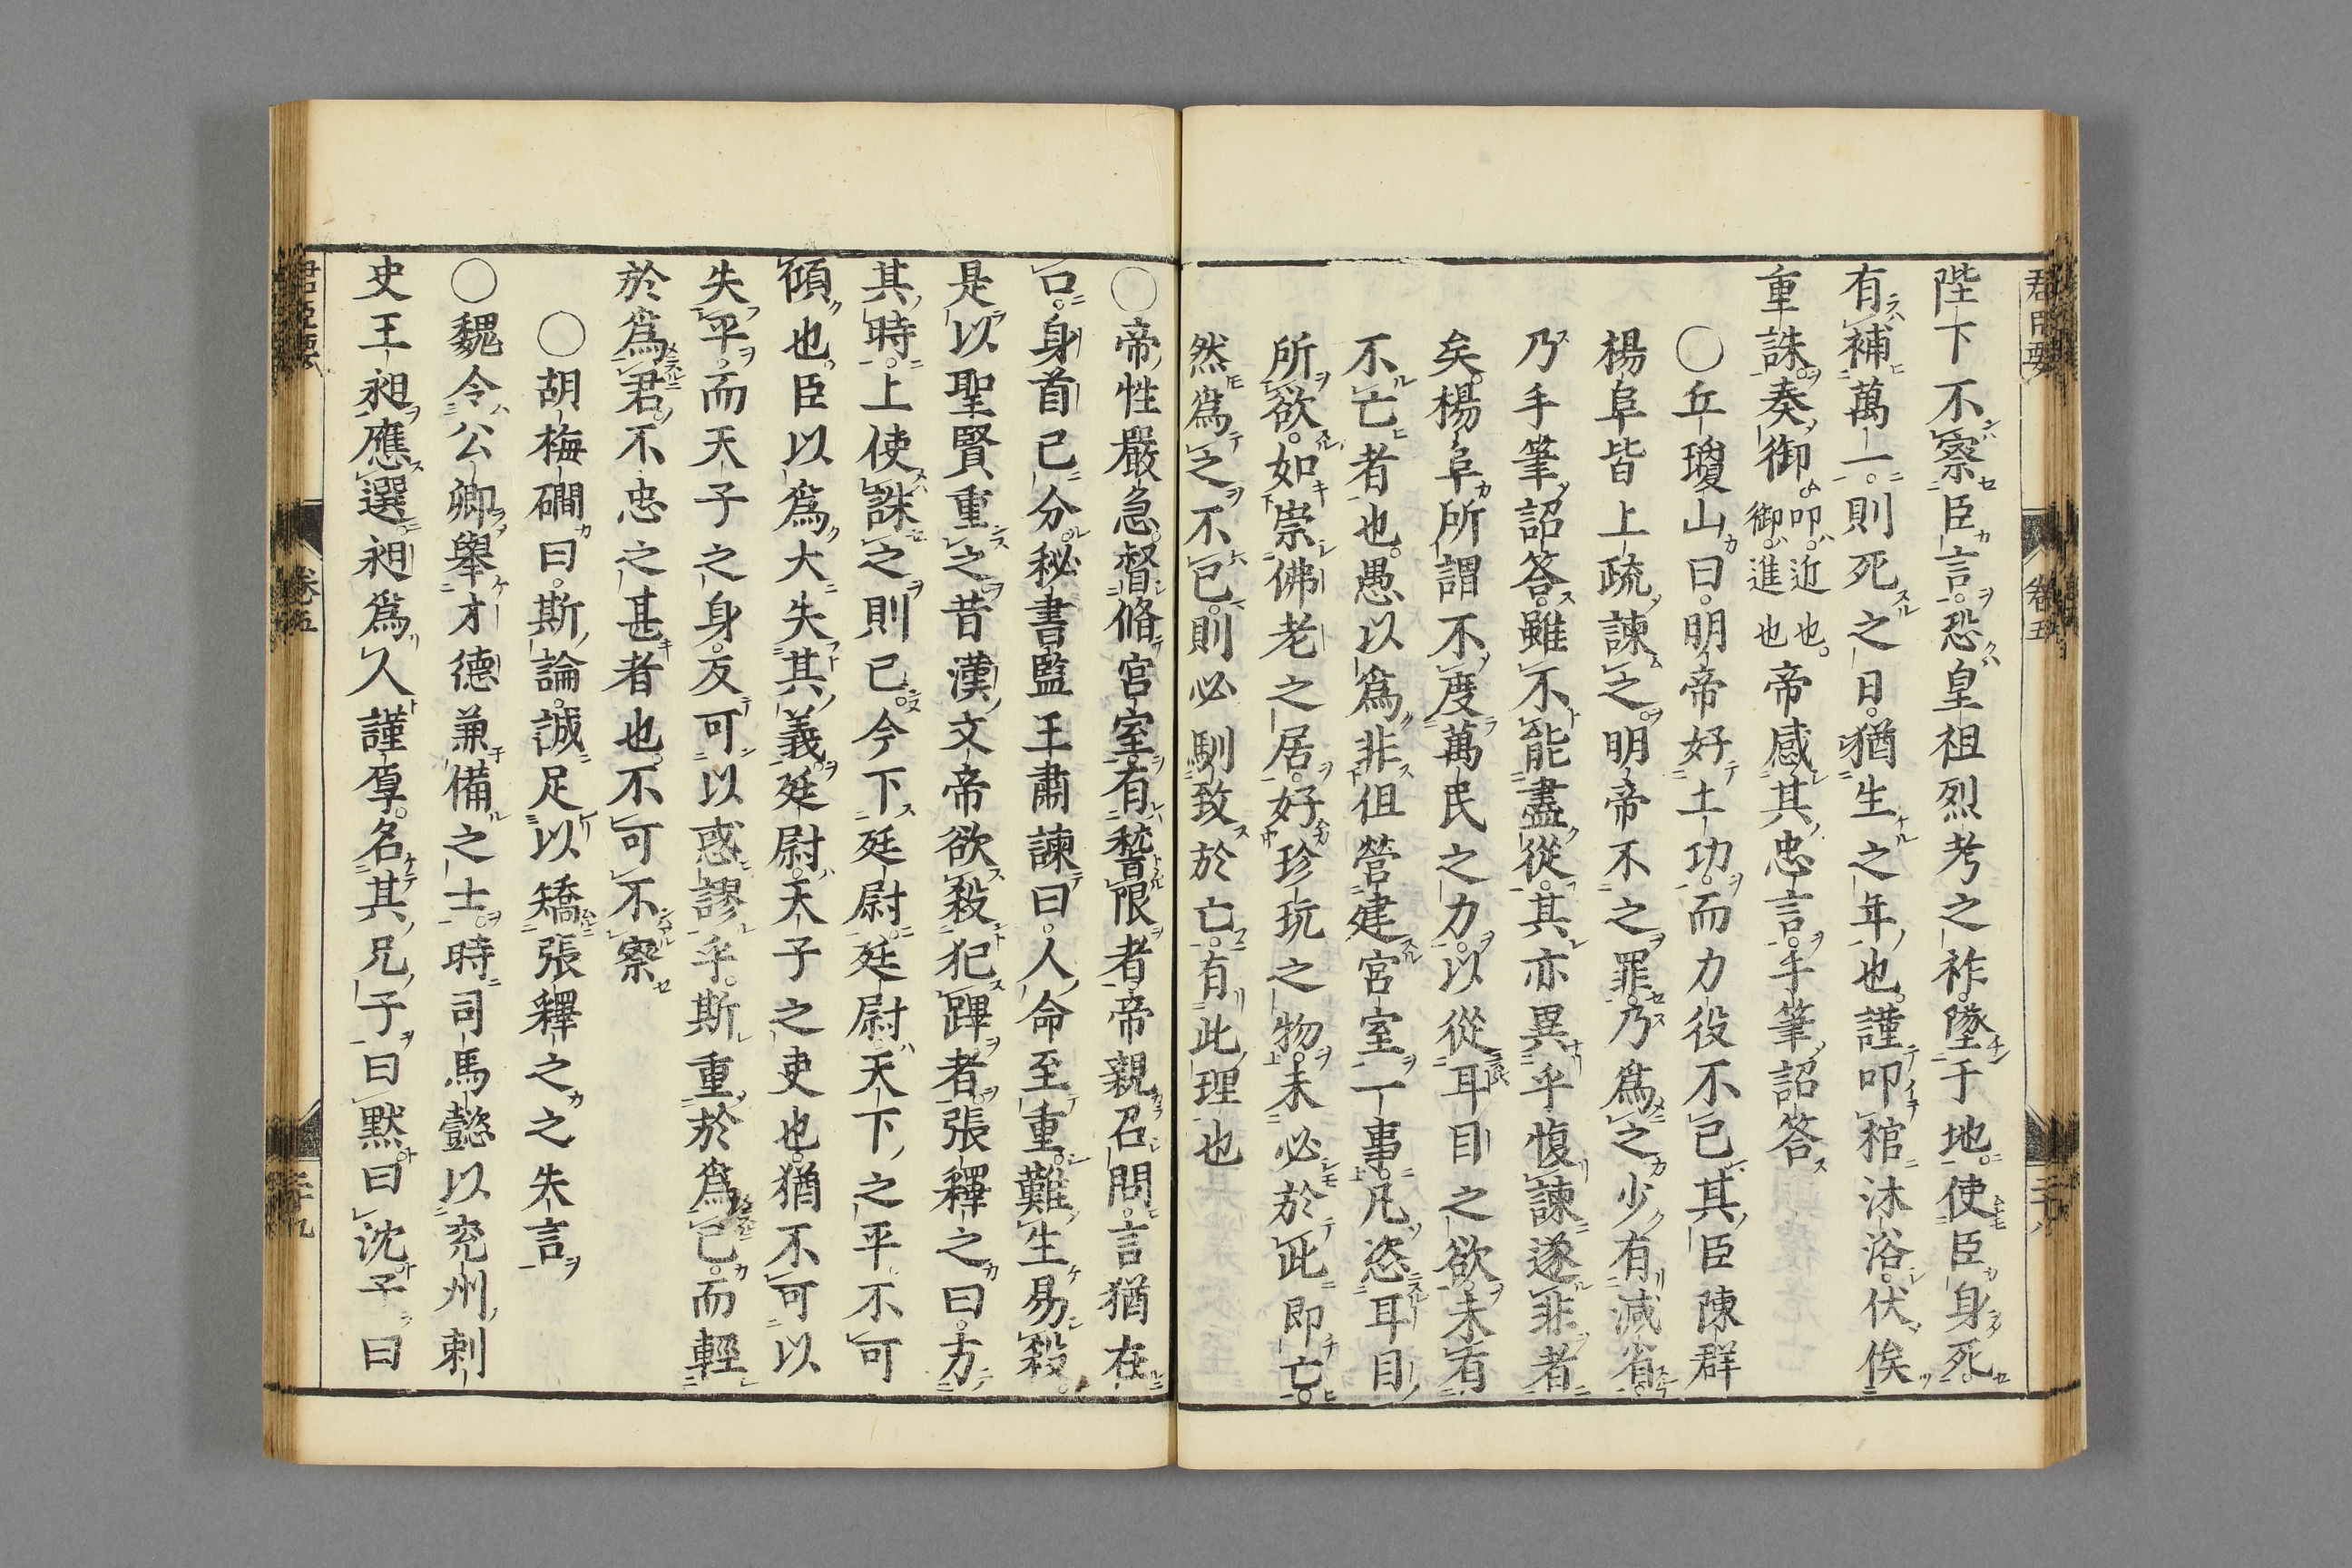 陛下不察臣言。恐皇祖烈考之祚。墜于地。使臣身死。
有補萬一。則死之日。猶生之年也。謹叩棺沐浴。伏俟
重誅。奏御叩。近也。御。進也帝感其忠言。手筆詔答
〇丘瓊山曰。明帝好土功。而力役不已。其臣陳群
楊阜皆上疏諫之。明帝不之罪。乃爲之少有減省。
乃手筆詔答。雖不能盡從。其亦異乎愎諫遂非者
矣。楊阜所謂不度萬民之力。以從耳目之欲。未有
不亡者也。愚以爲非但營建宮室一事。凡恣耳目
所欲。如崇佛老之居。好珍玩之物。未必於此即亡。
然爲之不已。則必馴致於亡。有此理也
〇帝性嚴急。督脩宮室。有稽限者。帝親召問。言猶在
口。身首已分。秘書監王肅諫曰。人命至重。難生易殺。
是以聖賢重之。昔漢文帝欲殺犯蹕者。張釋之曰。方
其時。上使誅之則已。今下廷尉。廷尉。天下之平。不可
傾也。臣以爲大失其義。廷尉。天子之吏也。猶不可以
失平。而天子之身。反可以惑謬乎。斯重於爲己。而輕
於爲君。不忠之甚者也。不可不察
〇胡梅磵曰。斯論。誠足以矯張釋之之失言
〇魏令公卿舉才德兼備之士。時司馬懿以兗州刺
史王昶應選。昶爲人謹厚。名其兄子曰默曰沈子曰
卷五
君臣要
卷五